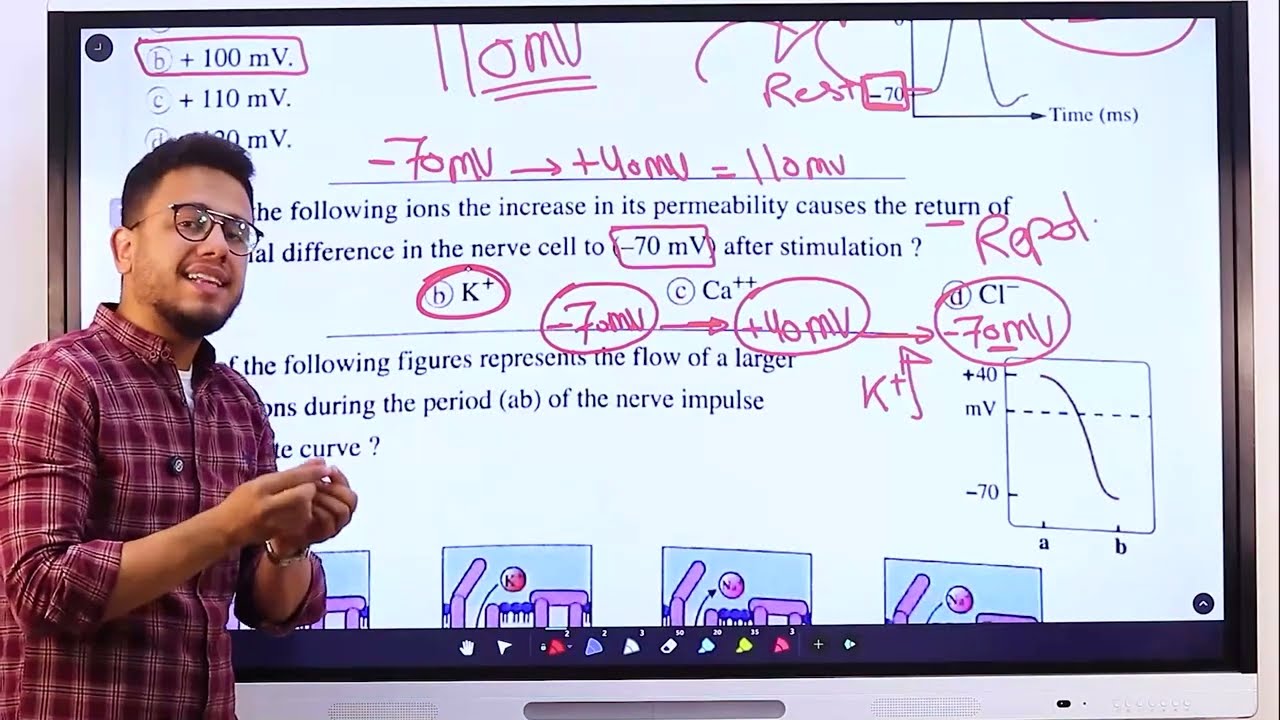 ⓑ + 100 mV.
110mV
ⓒ + 110 mV.
Rest -70
Time (ms)
mV.
-70mV → +40mV = 110mV
he following ions the increase in its permeability causes the return of
al difference in the nerve cell to (–70 mV) after stimulation ?
Repol.
ⓑ K⁺
ⓒ Ca⁺⁺
ⓓ Cl⁻
-70mV → +40mV → -70mV
K+
f the following figures represents the flow of a larger
ons during the period (ab) of the nerve impulse
te curve ?
+40
mV
–70
a b
K
Na
Na
2 2 3 50 20 35 3